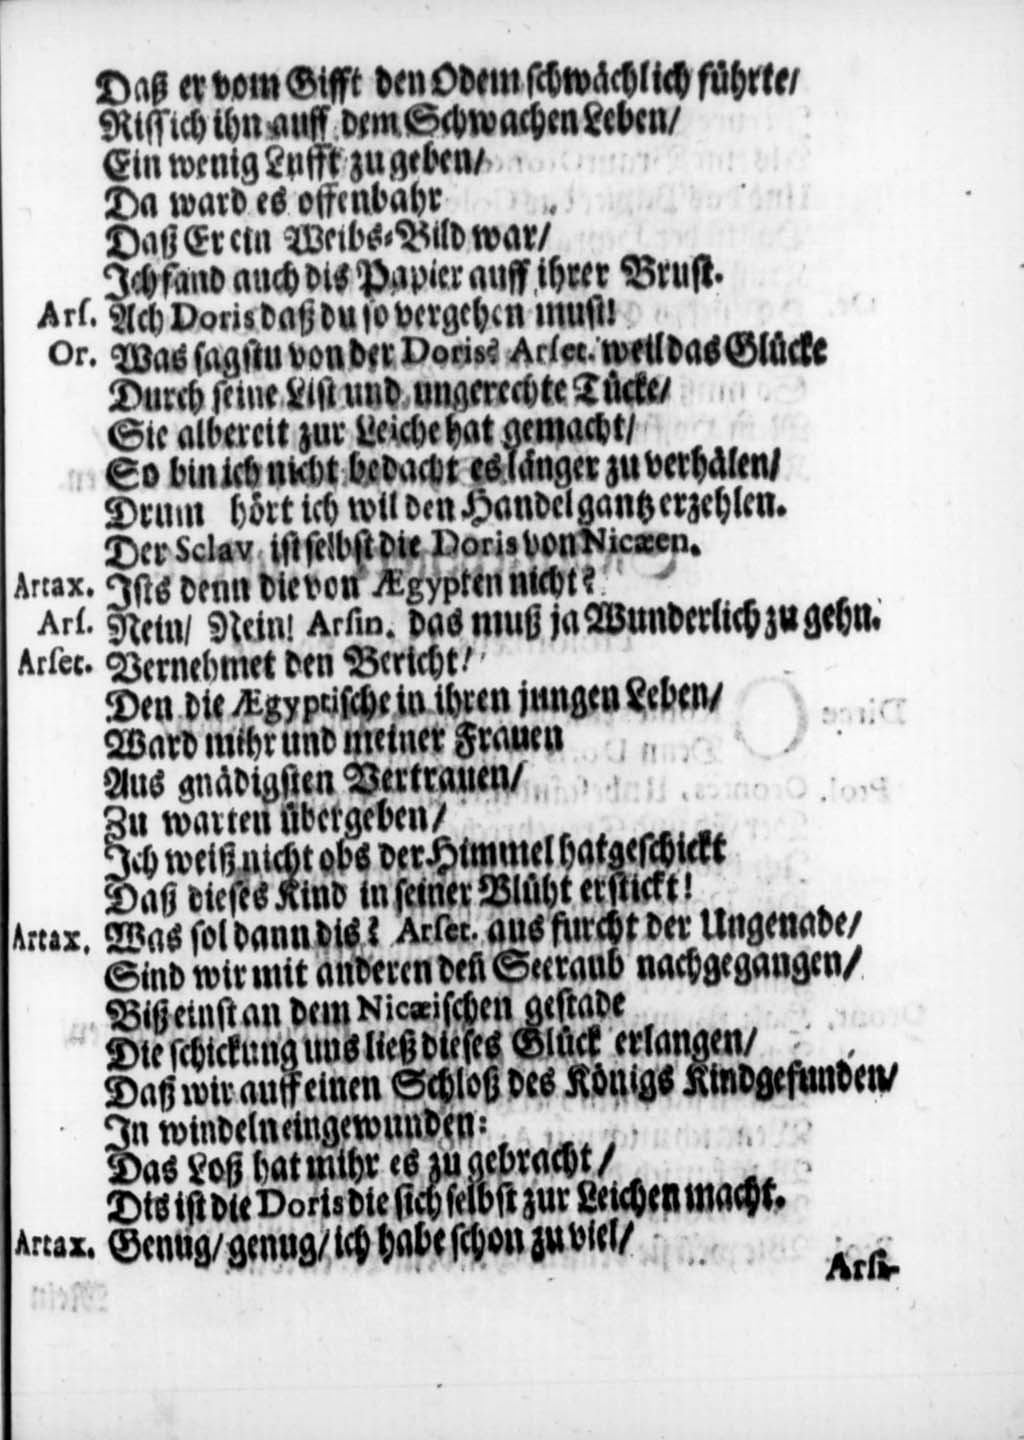 Daß er vom Gifft den Odem schwächlich führte/
Riss ich ihn auff dem Schwachen Leben/
Ein wenig Lufft zu geben/
Da ward es offenbahr
Daß Er ein Weibs-Bild war/
Ich fand auch dis Papier auff ihrer Brust.
Ars. Ach Doris daß du so vergehen must!
Or. Was sagstu von der Doris? Arset. weil das Glücke
Durch seine List und ungerechte Tücke/
Sie albereit zur Leiche hat gemacht/
So bin ich nicht bedacht es länger zu verhälen/
Drum hört ich wil den Handel gantz erzehlen.
Der Sclav ist selbst die Doris von Nicæen.
Artax. Ists denn die von Ægypten nicht?
Ars. Nein/ Nein! Arsin. das muß ja Wunderlich zu gehn.
Arset. Vernehmet den Bericht!
Den die Ægyptische in ihren jungen Leben/
Ward mihr und meiner Frauen
Aus gnädigsten Vertrauen/
Zu warten übergeben/
Ich weiß nicht obs der Himmel hat geschickt
Daß dieses Kind in seiner Blüht erstickt!
Artax. Was sol dann dis? Arset. aus furcht der Ungenade/
Sind wir mit anderen deñ Seeraub nachgegangen/
Biß einst an dem Nicæischen gestade
Die schickung uns ließ dieses Glück erlangen/
Daß wir auff einen Schloß des Königs Kind gefunden/
In windeln eingewunden:
Das Loß hat mihr es zu gebracht/
Dis ist die Doris die sich selbst zur Leichen macht.
Artax. Genug/ genug/ ich habe schon zu viel/
Arsi-